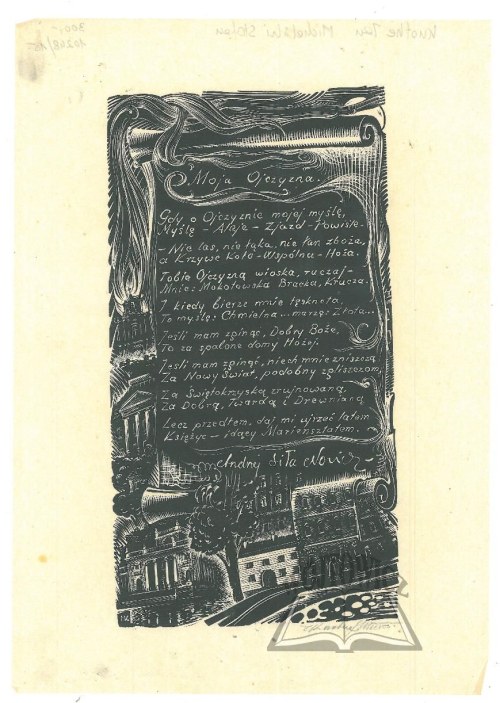 Moja Ojczyzna.
Gdy o Ojczyźnie mojej myślę,
Myślę – Aleje – Zjazd – Powiśle
– Nie las, nie łąka, nie łan zboża,
a Krzywe Koło – Wspólna – Hoża.
Tobie Ojczyzną wioska, ruczaj –
Mnie: Mokotowska Bracka, Krucza.
I kiedy bierze mnie tęsknota,
To myślę: Chmielna... marzę: Złota...
Jeśli mam zginąć, Dobry Boże,
To za spalone domy Hożej.
Jeśli mam zginąć, niech mnie zniszczą
Za Nowy Świat, podobny zgliszczom,
Za Świętokrzyską zrujnowaną,
Za Dobrą, Twardą i Drewnianą
Lecz przedtem daj mi ujrzeć latem
Księżyc – idący Mariensztatem.